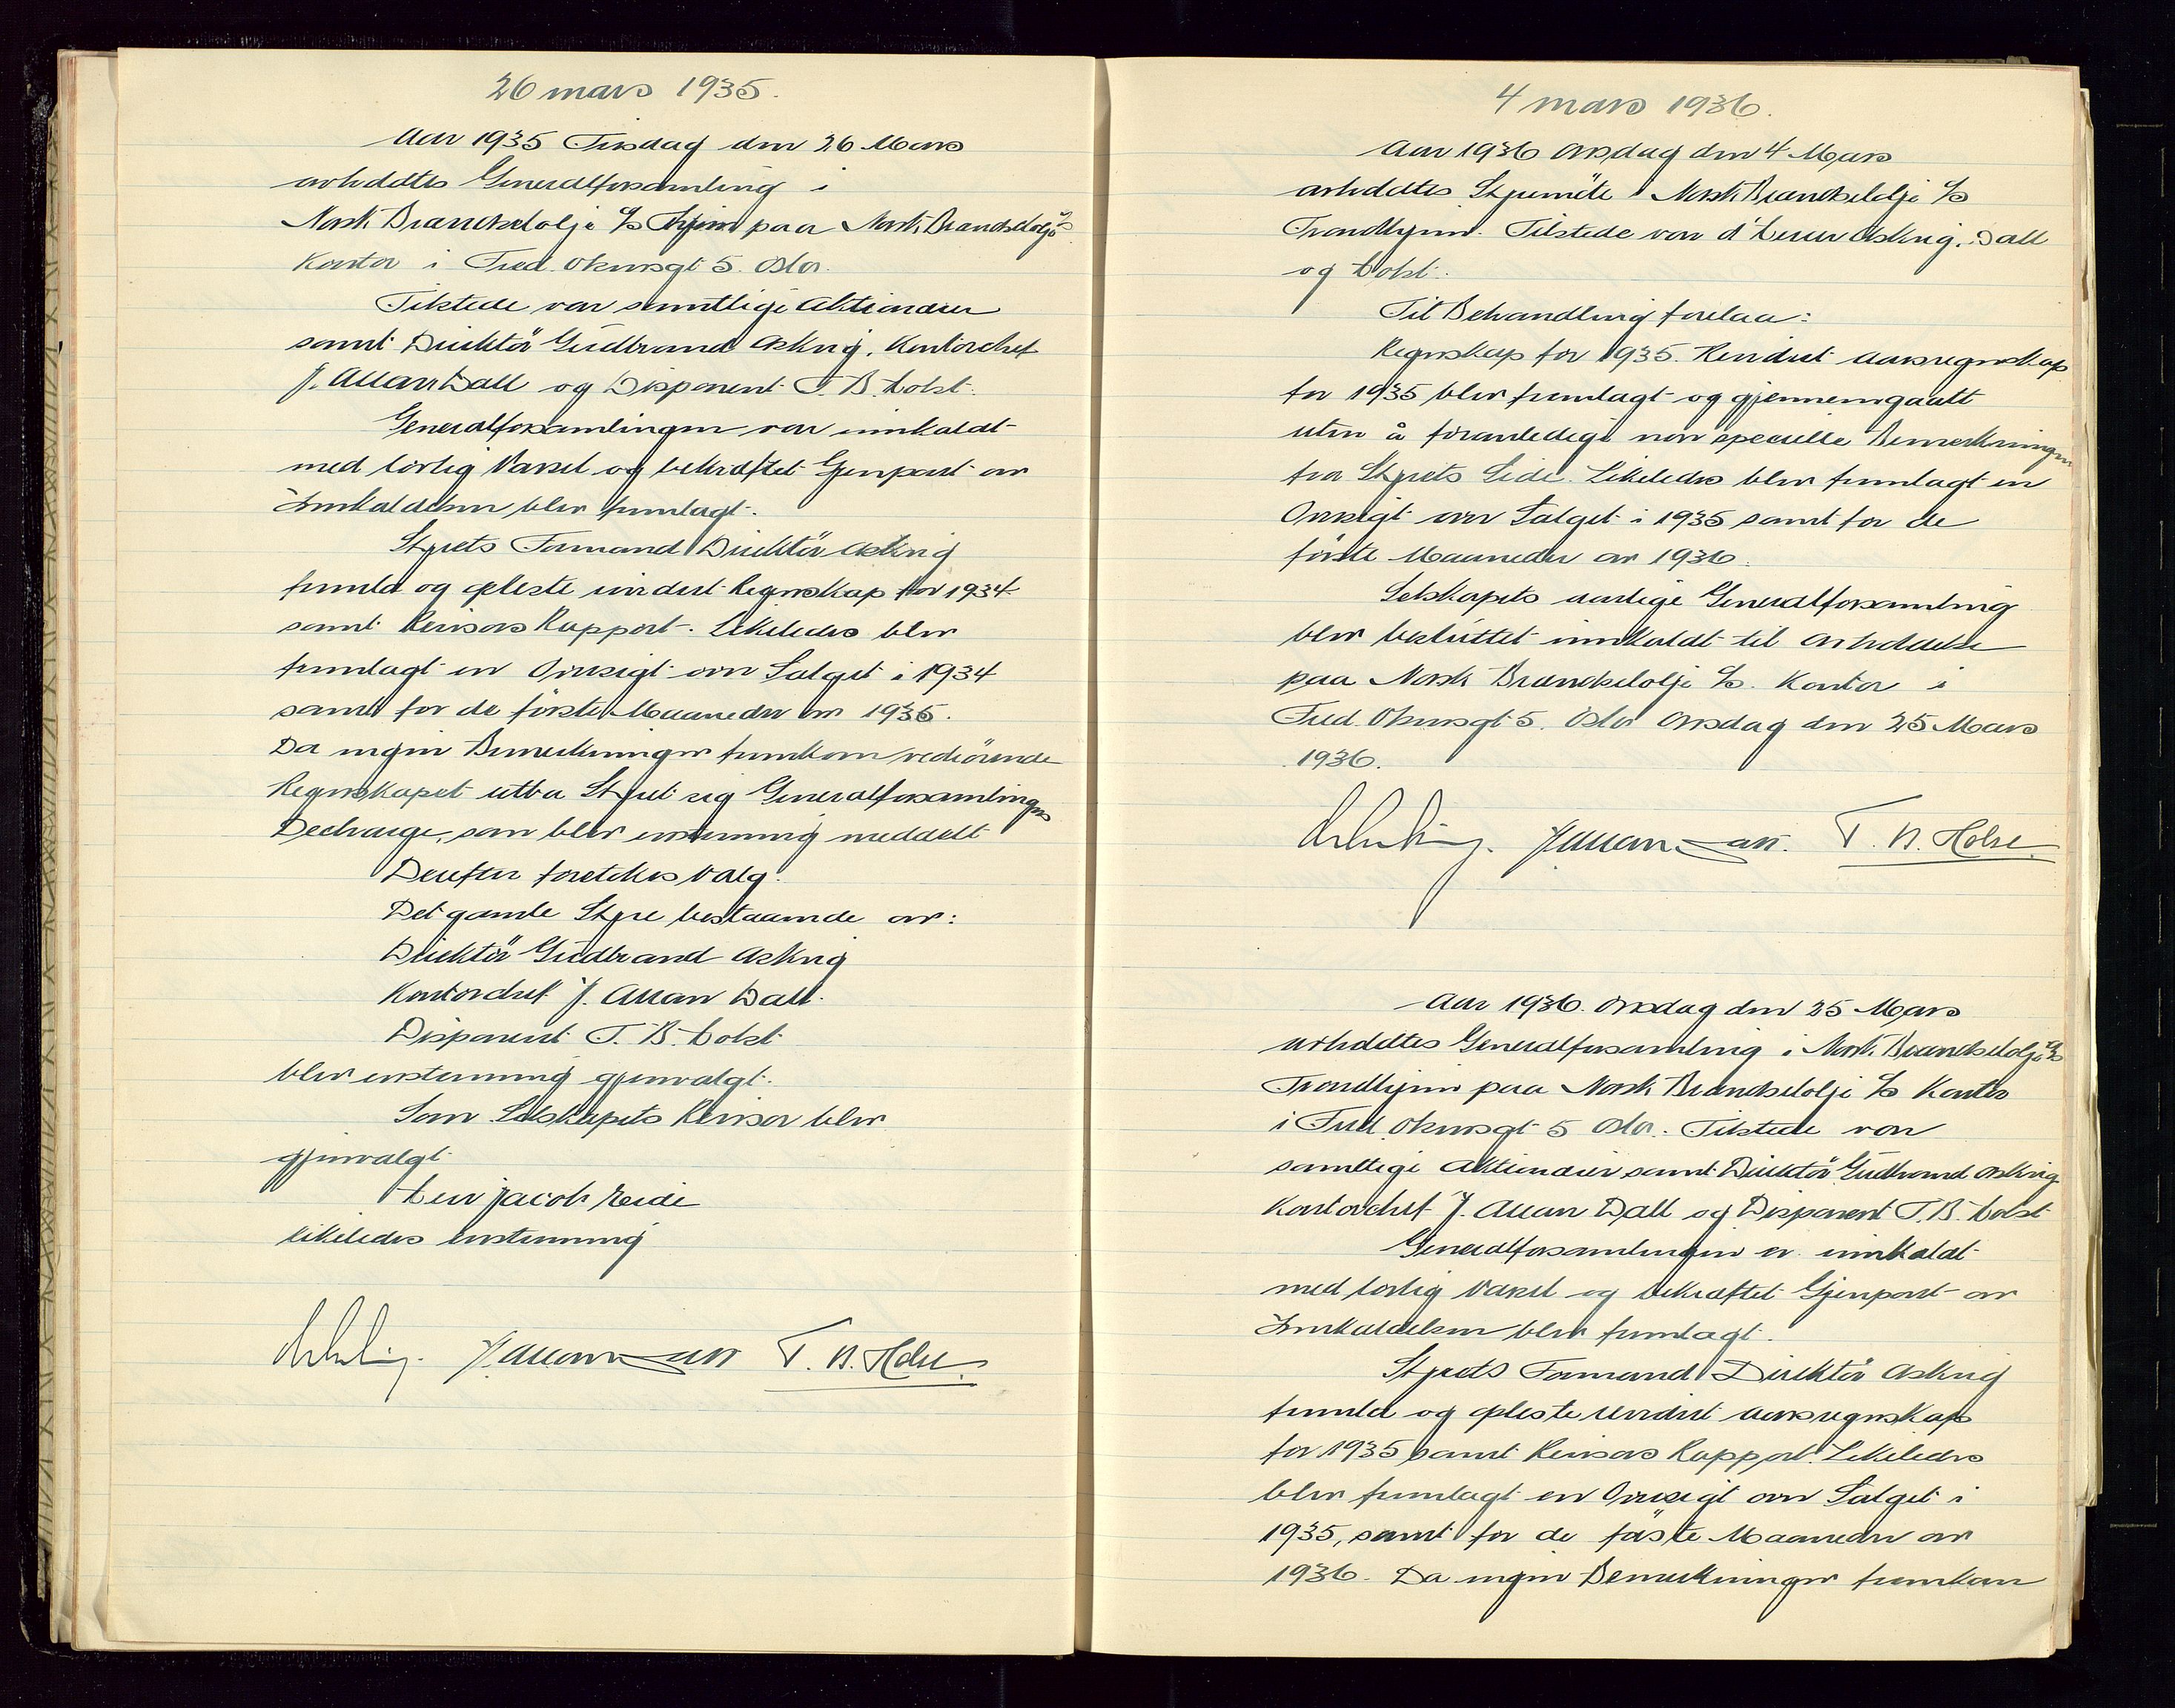 26 mars 1935.
Aar 1935 Tirsdag den 26 Mars
avholdtes Generalforsamling i
Norsk Brændselolje A/S Thjem paa Norsk Brændseloljes A/S
Kontor i Fred. Olsensgt 5. Oslo.
Tilstede var samtlige Aktionærer
samt Direktör Gudbrand Askvig, Kontorchef
J. Allan Dall og Disponent T. B. Holst.
Generalforsamlingen var innkaldt
med lovlig Varsel og bekræftet Gjenpart av
Innkaldelsen blev fremlagt.
Styrets Formand Direktör Askvig
fremla og opleste revidert Regnskap for 1934
samt Revisors Rapport. Likeledes blev
fremlagt en Oversigt over Salget i 1934
samt for de förste Maaneder av 1935.
Da ingen Bemerkninger fremkom vedrörende
Regnskapet utba Styret sig Generalforsamlingens
Decharge, som blev enstemmig meddelt
Derefter foretokes Valg.
Det gamle Styre bestaaende av:
Direktör Gudbrand Askvig
Kontorchef J. Allan Dall.
Disponent T. B. Holst
blev enstemmig gjenvalgt.
Som Selskapets Revisor blev
gjenvalgt
Herr Jacob Eide
likeledes enstemmig
J. Allan Dall T. B. Holst.
4 mars 1936.
Aar 1936 Onsdag den 4 Mars
avholdtes Styremöte i Norsk Brændselolje A/S
Trondhjem. Tilstede var d'Herrer Askvig, Dall
og Holst.
Til Behandling forelaa:
Regnskap for 1935. Revidert Aarsregnskap
for 1935 blev fremlagt og gjennemgaatt
uten å foranledige noen specielle Bemerkninger
fra Styrets Side. Likeledes blev fremlagt en
Oversigt over Salget i 1935 samt for de
förste Maaneder av 1936.
Selskapets aarlige Generalforsamling
blev besluttet innkaldt til Avholdelse
paa Norsk Brændselolje A/S. Kontor i
Fred. Olsensgt 5. Oslo Onsdag den 25 Mars
1936.
J Allan Dall. T. B. Holst.
Aar 1936. Onsdag den 25 Mars
avholdtes Generalforsamling i Norsk Brændselolje A/S
Trondhjem paa Norsk Brændselolje A/S Kontor
i Fred. Olsensgt 5 Oslo. Tilstede var
samtlige Aktionærer samt Direktör Gudbrand Askvig
Kontorchef J. Allan Dall og Disponent T. B. Holst
Generalforsamlingen er innkaldt
med lovlig Varsel og bekræftet Gjenpart av
Innkaldelsen blev fremlagt.
Styrets Formand Direktör Askvig
fremla og opleste revidert Aarsregnskap
for 1935 samt Revisors Rapport. Likeledes
blev fremlagt en Oversigt over Salget i
1935, samt for de förste Maaneder av
1936. Da ingen Bemerkninger fremkom